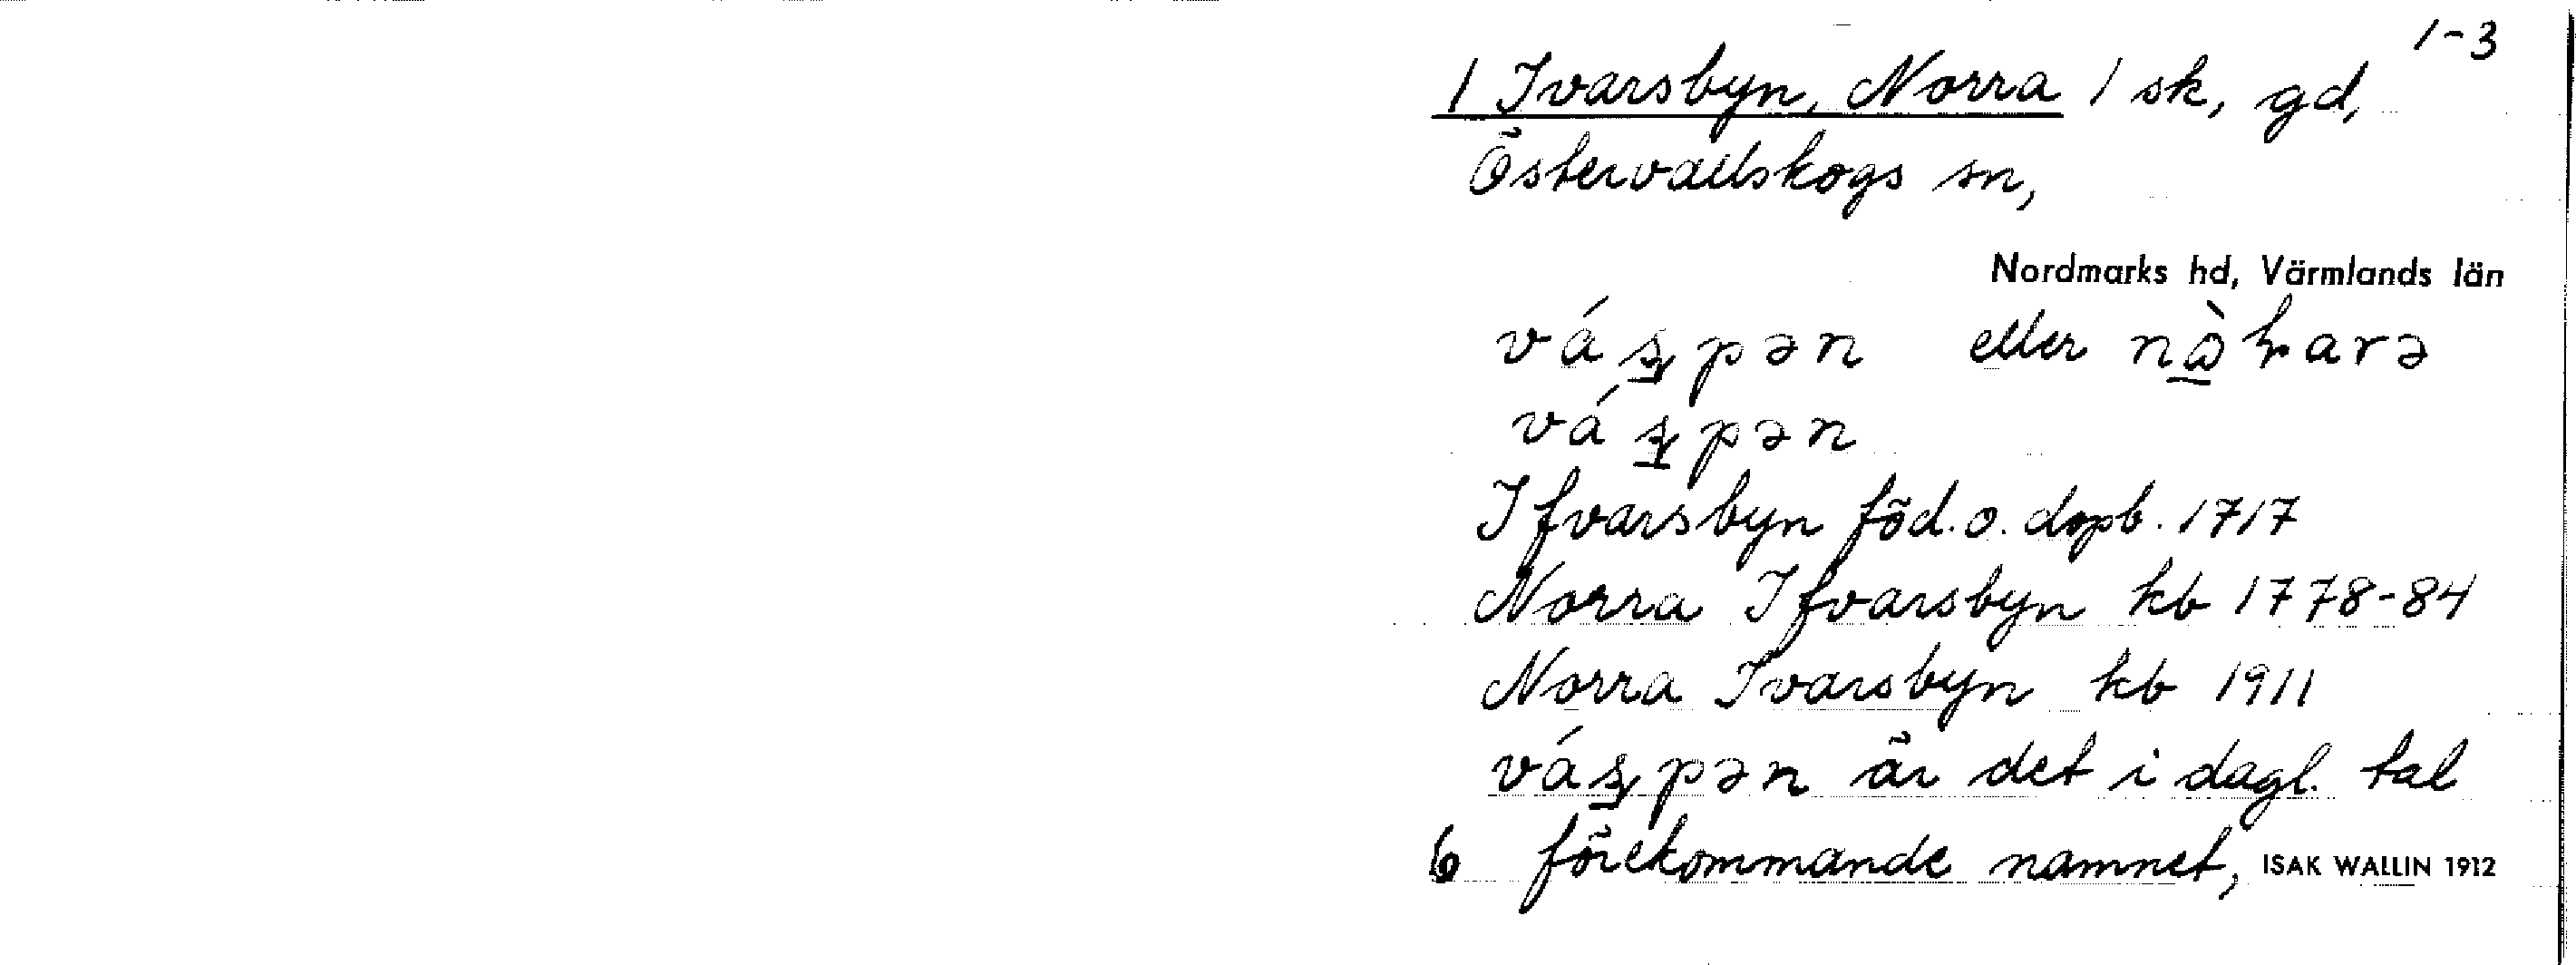 1-3
/ Ivarsbyn, Norra / sk, gd,
Östervallskogs sn,
Nordmarks hd, Värmlands län
eller
Ifvarsbyn föd. o. dopb. 1717
Norra Ifvarsbyn kb 1778-84
Norra Ivarsbyn kb 1911
är det i dagl. tal
6 förekommande namnet, ISAK WALLIN 1912